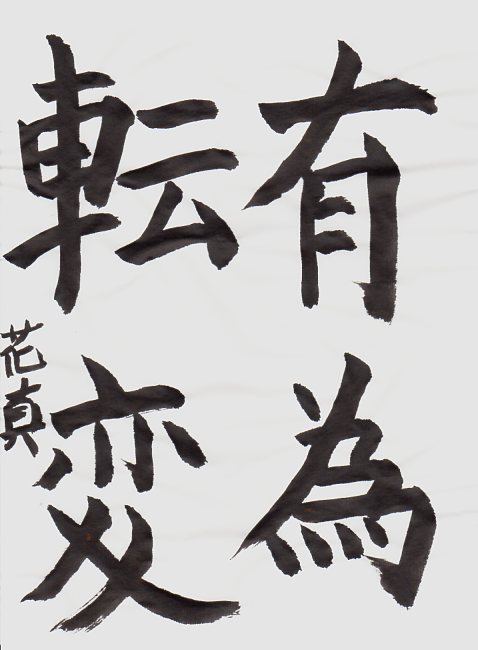 有為
転変
花真